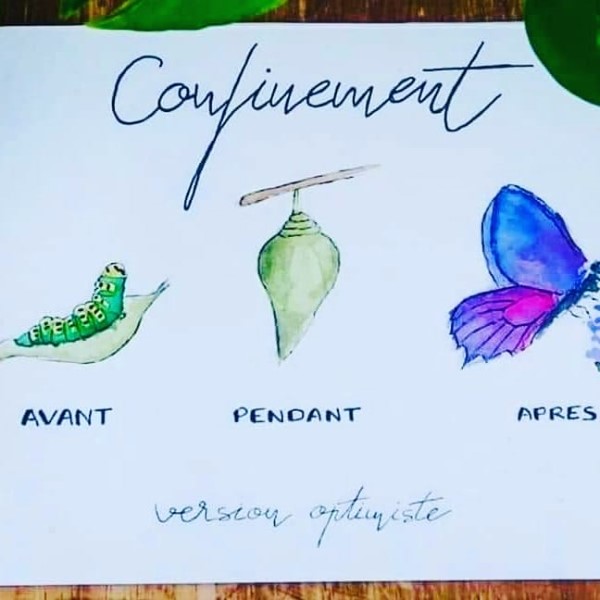 Confinement
AVANT PENDANT APRES
version optimiste